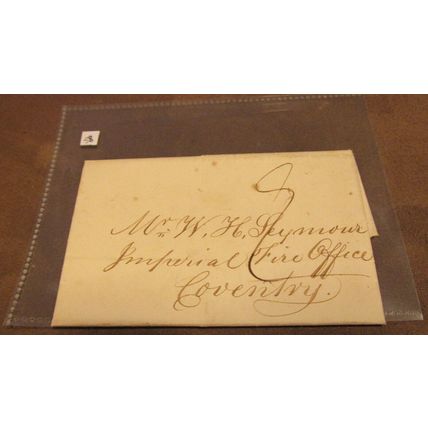 Mr. W. H. Seymour
Imperial Fire Office
Coventry.